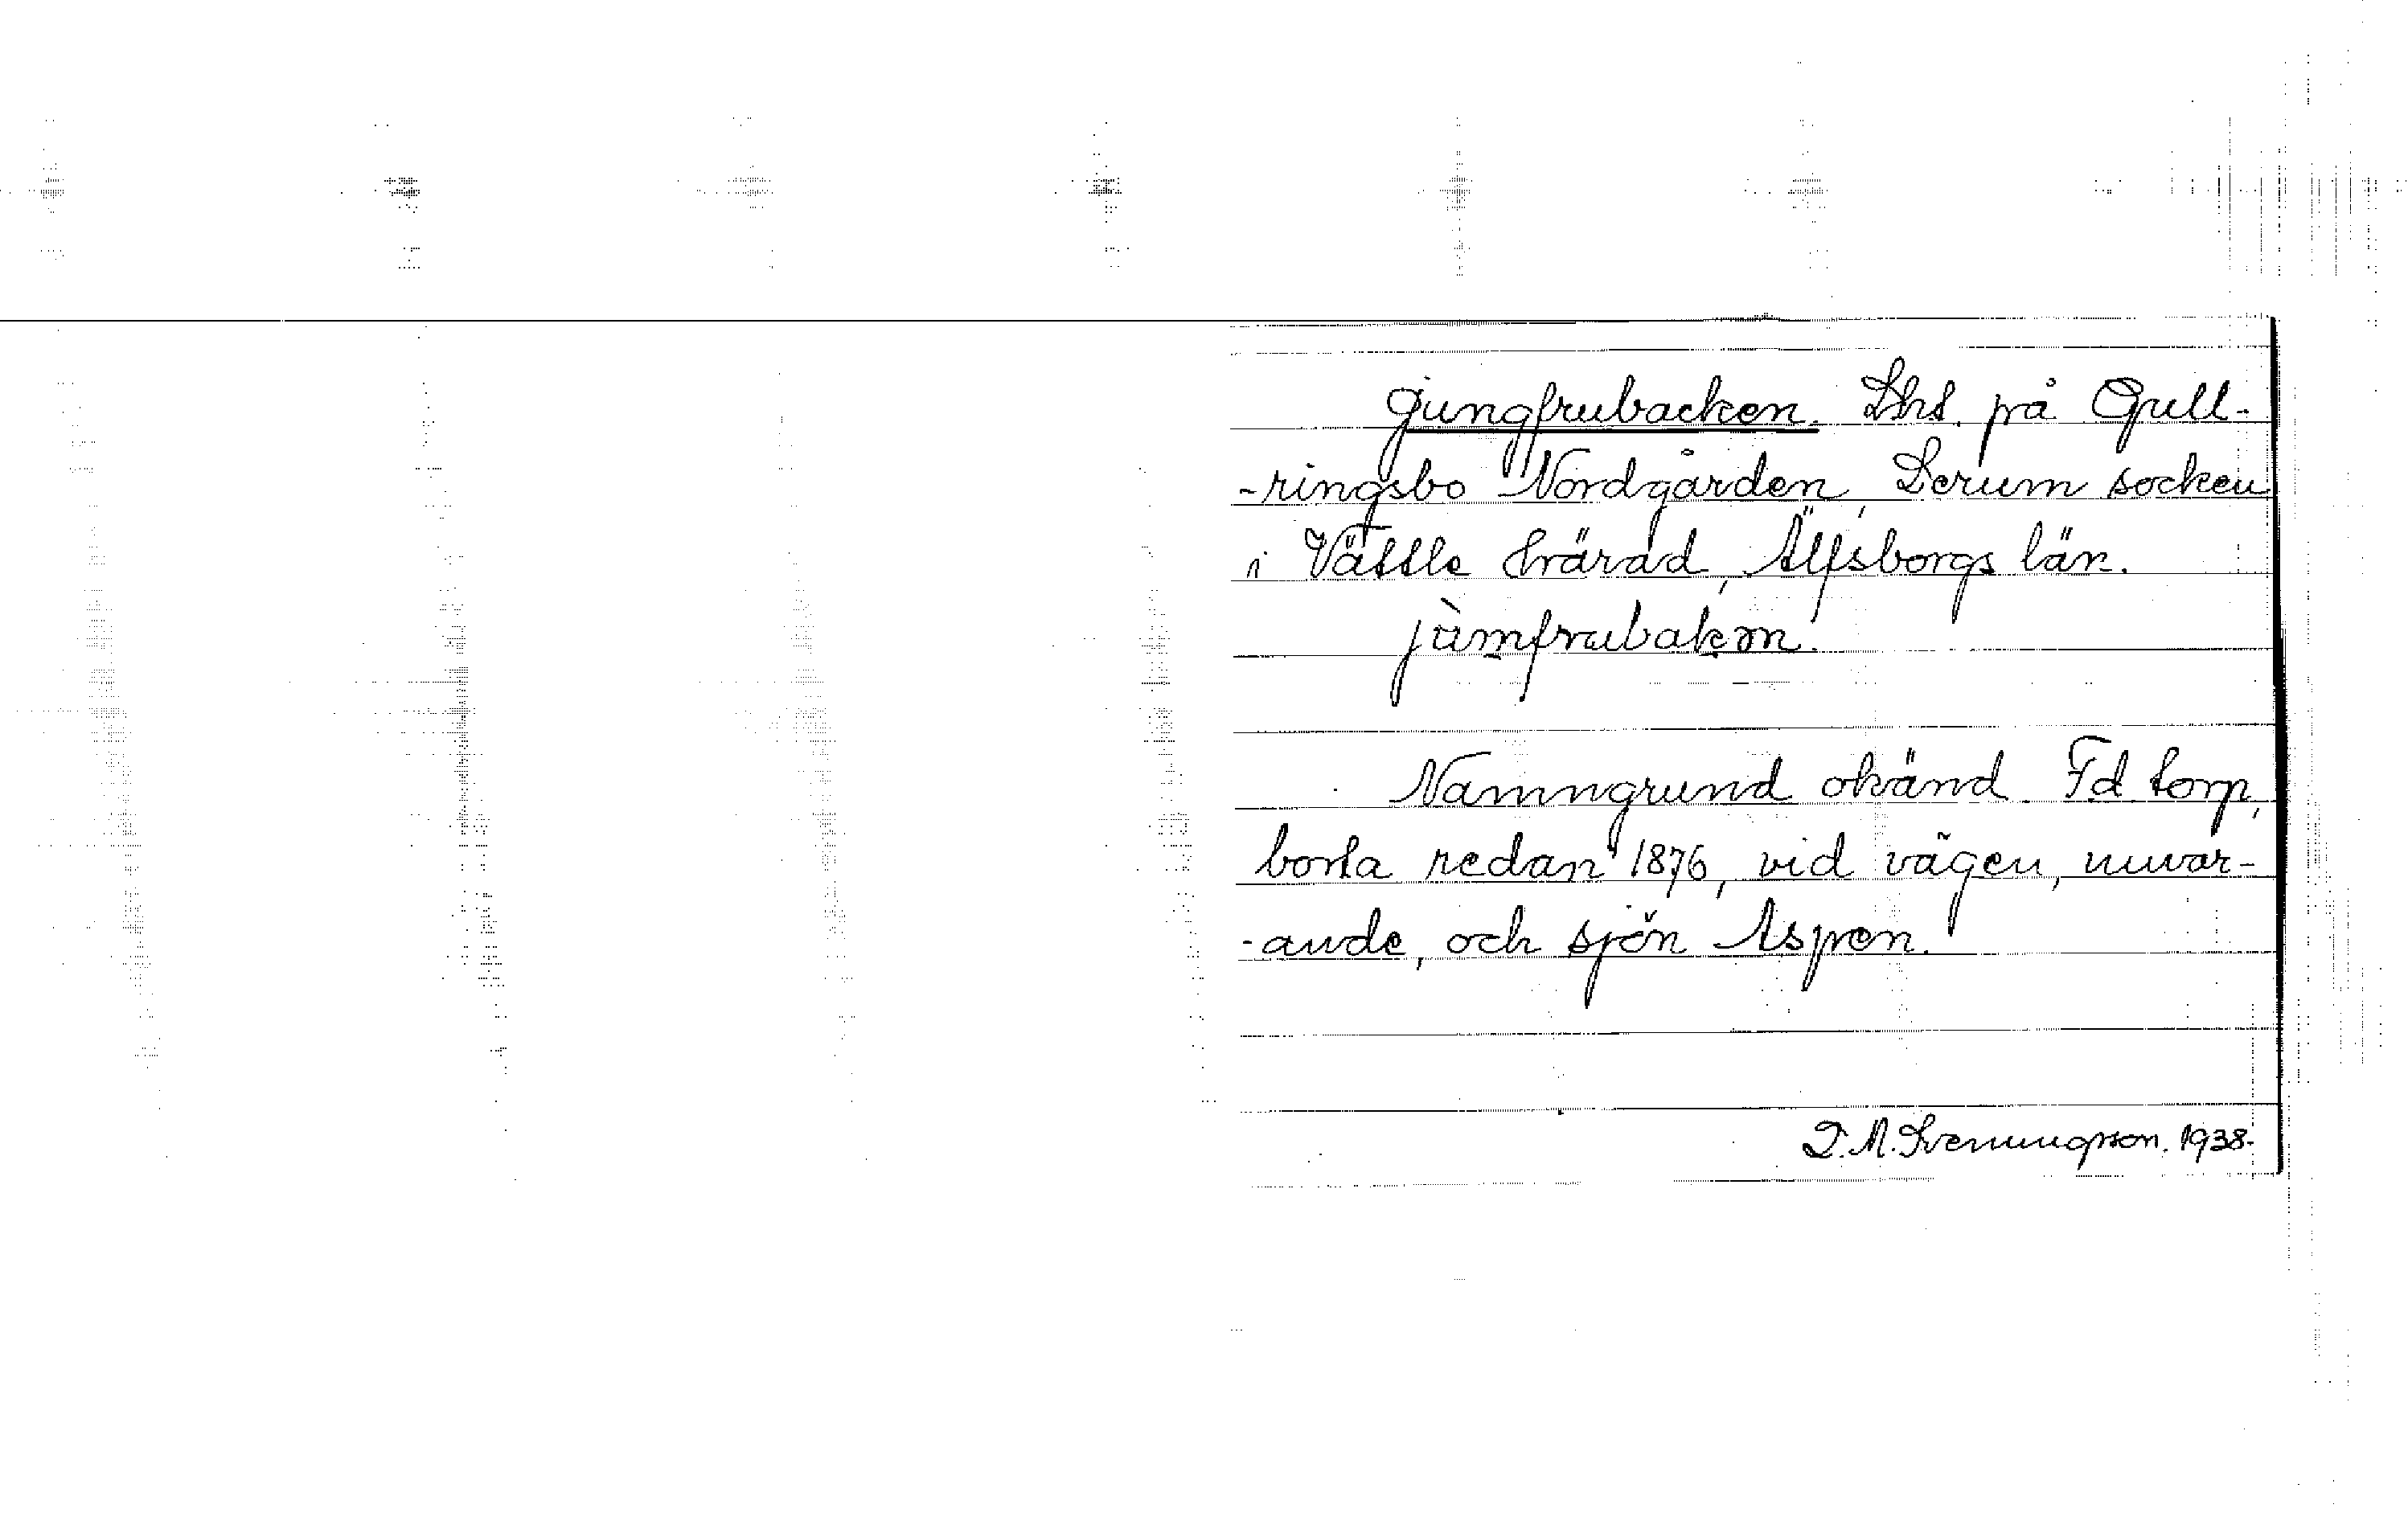 Jungfrubacken. Lhs. på Gull-
-ringsbo Nordgården, Lerum socken
i Vättle härad, Älfsborgs län.
jùmfrubakən.
Namngrund okänd. Fd torp,
borta redan 1876, vid vägen, nuvar-
-ande, och sjön Aspen.
D. M. Svenungsson. 1938.